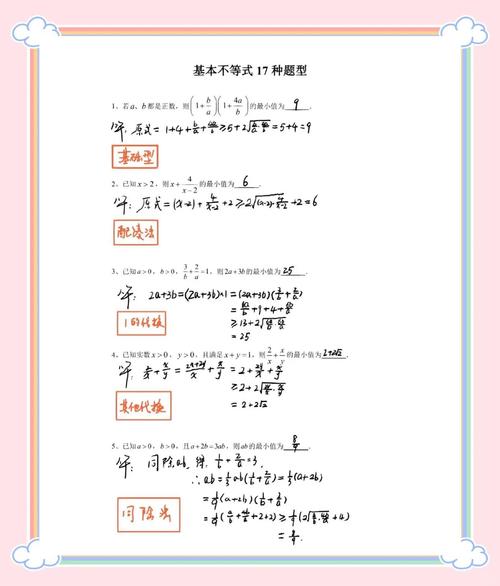 基本不等式 17 种题型
1、若 a、b 都是正数，则 (1+b/a)(1+4a/b) 的最小值为 9 .
解：原式=1+4+b/a+4a/b≥5+2√(b/a·4a/b)=5+4=9
基础型
2、已知 x>2，则 x+4/(x-2) 的最小值为 6 .
解：原式=(x-2)+4/(x-2)+2≥2√((x-2)·4/(x-2))+2=6
配凑法
3、已知 a>0，b>0，3/b+2/a=1，则 2a+3b 的最小值为 25 .
解：2a+3b=(2a+3b)×1=(2a+3b)(3/b+2/a)
=6a/b+9+4+6b/a
≥13+2√(6a/b·6b/a)
=25
1的代换
4、已知实数 x>0，y>0，且满足 x+y=1，则 2/x+x/y 的最小值为 2+2√2 .
解：2/x+x/y=(2x+2y)/x+x/y=2+2y/x+x/y
≥2+2√(2y/x·x/y)
=2+2√2
其他代换
5、已知 a>0，b>0，且 a+2b=3ab，则 ab 的最小值为 8/9 .
解：同除ab，得，1/b+2/a=3，
∴ab=1/3ab(1/b+2/a)=1/3(a+2b)
=1/9(a+2b)(1/b+2/a)
=1/9(a/b+4b/a+2+2)≥1/9(2√(a/b·4b/a)+4)
=8/9
同除法